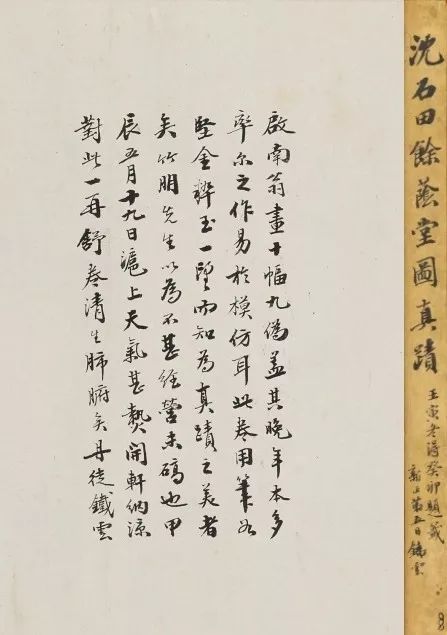 沈石田餘蔭堂圖真蹟
壬寅得癸卯題簽
新正第五日鐵雲
啟南翁畫十幅九偽蓋其晚年本多
率尔之作易於模仿耳此卷用筆如
堅金粹玉一望而知為真蹟之美者
矣竹朋先生以為不甚經營未碻也甲
辰五月十九日滬上天氣甚熱開軒納涼
對此一再舒卷清生肺腑矣丹徒鐵雲